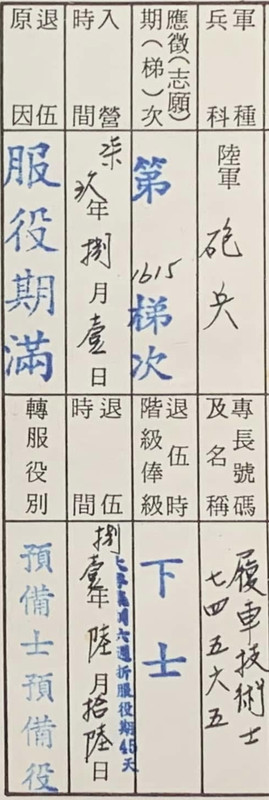 軍種
兵科
陸軍
砲兵
專長號碼
及名稱
履車技術士
七四五六五
應徵(志願)
期(梯)次
第1615梯次
退伍時
階級俸級
下士
入營
時間
柒玖年捌月壹日
退伍
時間
捌壹年陸月拾陸日
大專集訓六週折服役期45天
退伍
原因
服役期滿
轉服役別
預備士預備役